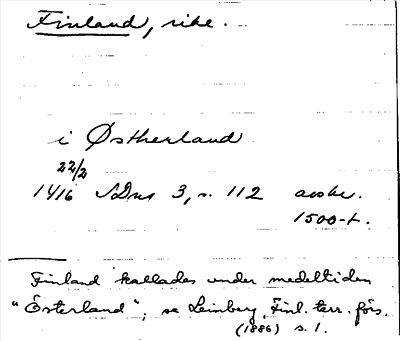 Finland, rike.
i Østherland
22/2
1416 SDns 3, s. 112 avskr.
1500-t.
Finland kallades under medeltiden
"Österland"; se Leinberg, Finl. terr. förs.
(1886) s. 1.